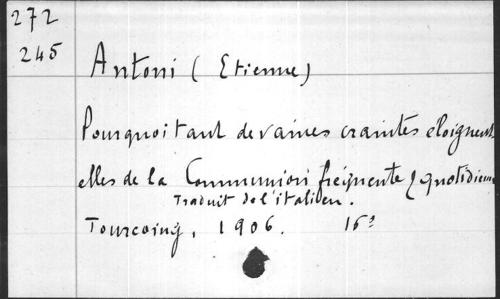 272
245
Antoni (Etienne)
Pourquoi tant de vaines craintes eloignent
elles de la Communion fréquente & quotidienne
Traduit de l'italien.
Tourcoing, 1906. 16º